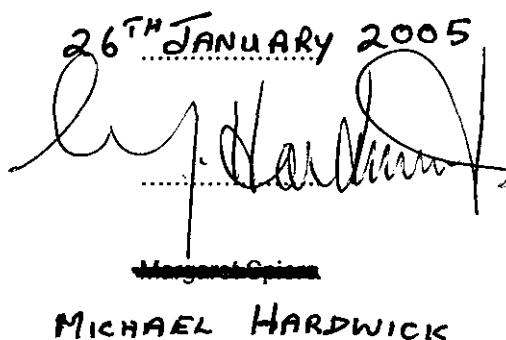 26TH JANUARY 2005
M. Hardwick
Margaret Spiers
MICHAEL HARDWICK